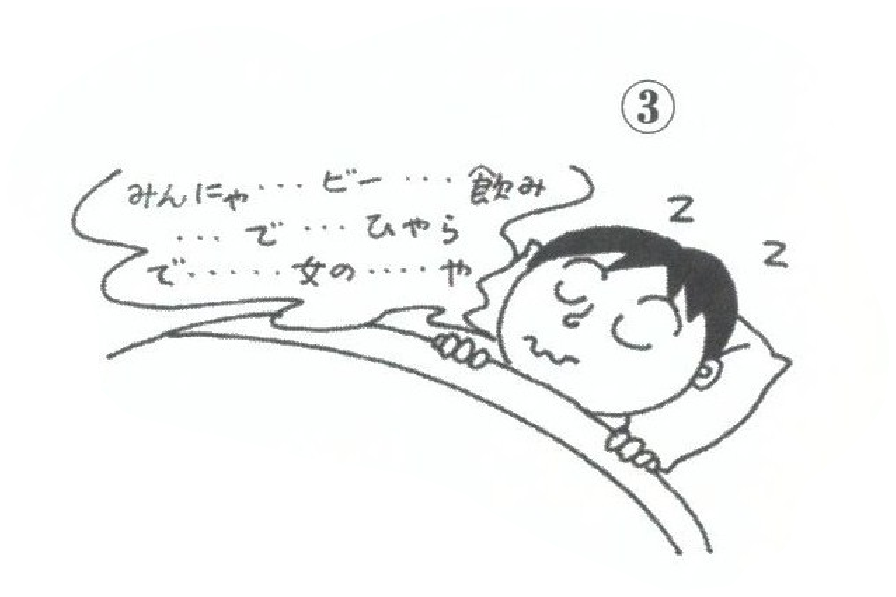 ③
みんにゃ・・・ビー・・・飲み
・・・で・・・ひゃら
で・・・・・女の・・・・や
z
z